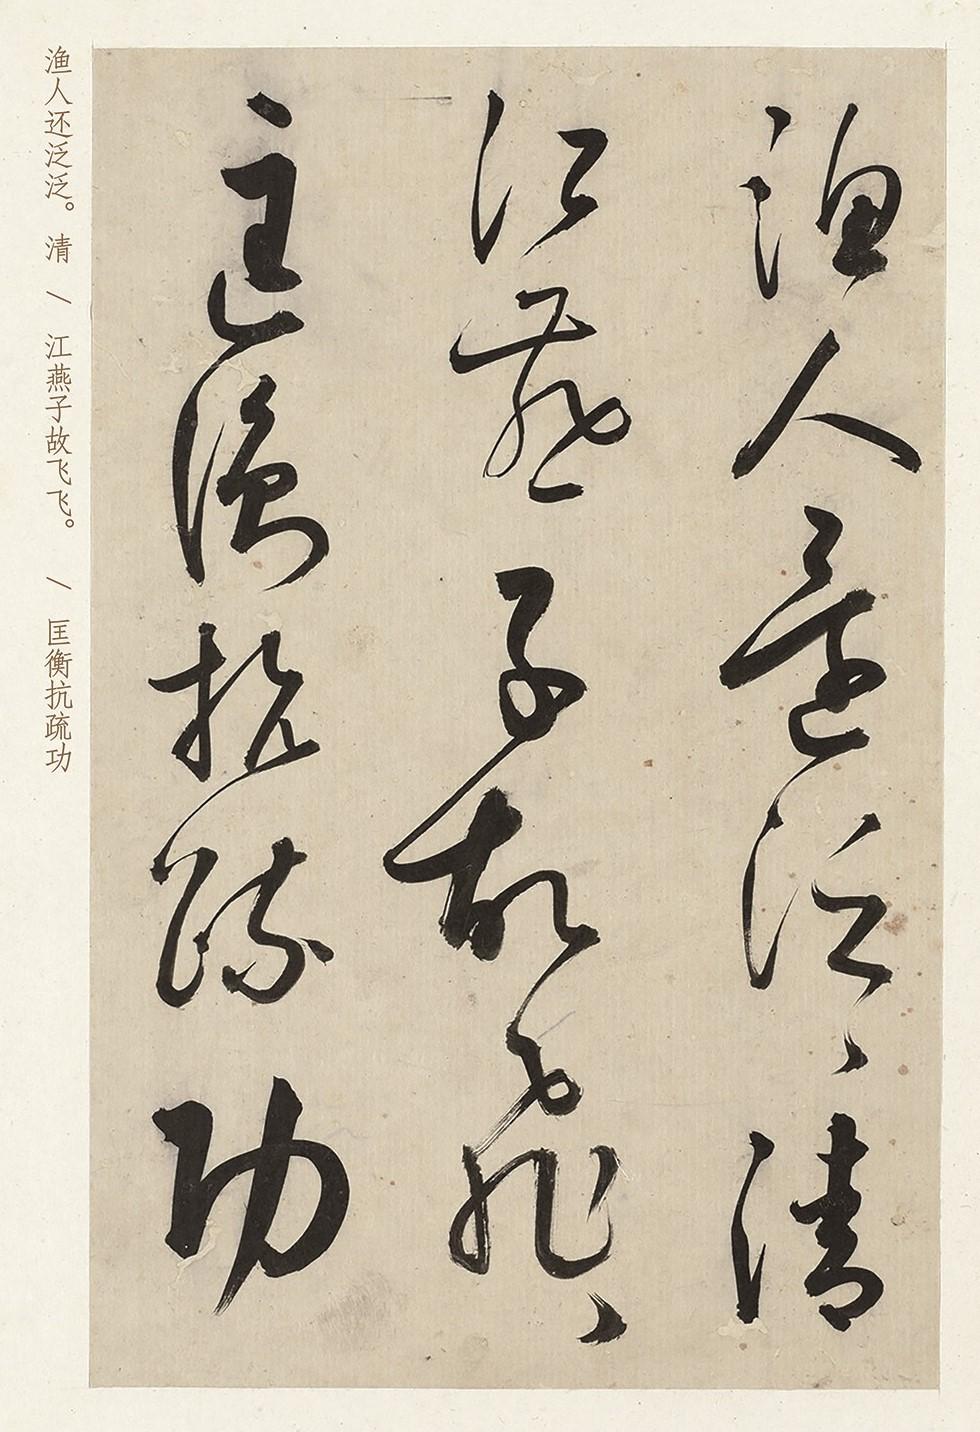 漁人還泛〻清
江燕子故飛〻
匡衡抗疏功
渔人还泛泛。清 / 江燕子故飞飞。 / 匡衡抗疏功